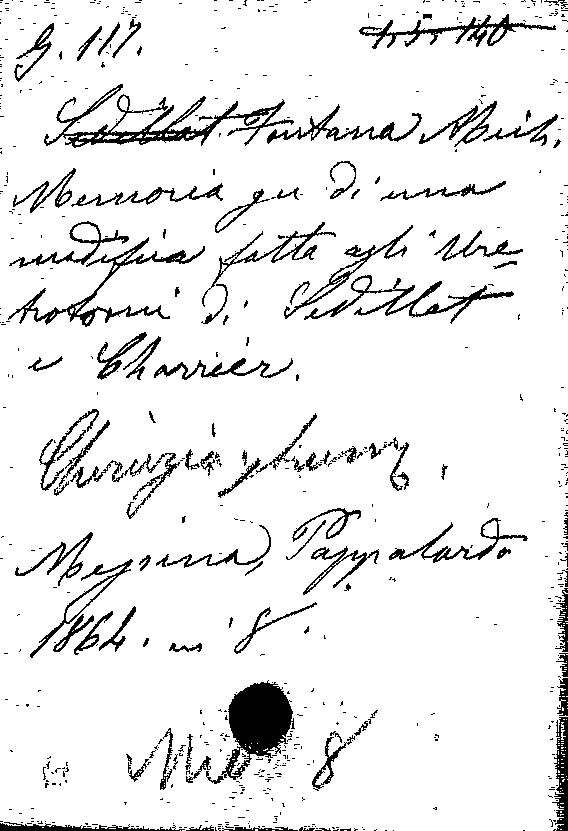 G. 117. 1, 5, 140
Sedillat. Fontana Mich.
Memoria su di una
modifica fatta agli Ure-
trotomi di Sedillat
e Charrier.
Chirurgia
Messina, Pappalardo
1864. in 8.
8